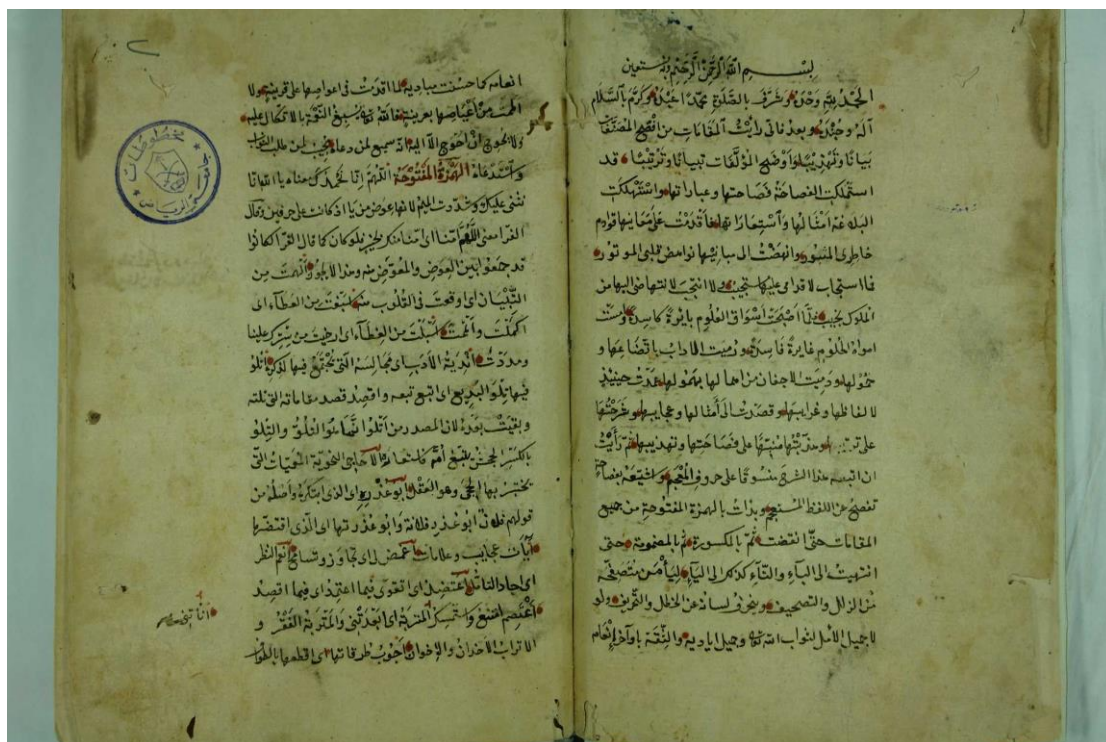 بسم الله الرحمن الرحيم وبه نستعين
الحمد لله وحده وشرف بالصلوة محمدا عبده وكرم بالسلام
آله وجنده وبعد فانى رايت المقامات من افصح المصنفات
بيانا وتهذيبا واوضح المؤلفات تبيانا وترتيبا قد
استملكت الفصاحة فصاحتها وعباراتها واستهلكت
البلاغة امثالها واستعاراتها فاقدمت على معانيها قوادم
خاطرى وانهضت الى مبانيها نوامض قلبى الموتور
فما استجاب لاقدامى عليها مستجيب ولا انتجب لانتهاضى اليها من
الملوك نجيب فلما اصبحت اسواق العلوم بايرة كاسدة وامست
امواه الحلوم غايرة فاسدة ورميت الاداب باقتضاعها و
خمولها ورميت الاجفان من اهمالها بهمولها عدت حينيذ
لالفاظها وغرايبها وقصدت الى أمثالها وعجايبها وشرحتها
على ترتيبها وهذبتها منبها على فصاحتها وتهذيبها ثم رأيت
ان اتبعه هذا الشرح منسوقا على حروف المعجم واشيعه بفصاحة
تفصح عن اللفظ المستعجم وبدات بالهمزة المفتوحة من جميع
المقامات حتى انقضت ثم بالمكسورة ثم بالمضمومة حتى
انتهيت الى الباء والتاء كذلك الى الياء ليأمن متصفحه
من الزلل والتصحيف وينحرف لسانه عن الخطل والتحريف ولو
لا جميل الأمل لثواب الله وجميل اياديه والثقة باواخر إنعام
انعامه كما حسنت مباديه لما اقدمت فى اعواصها على قرينة ولا
المت من أغياصها بعرينة فالله يسبغ النعمة بالاتكال عليه
ولا يحوج ان احوج الا اليه انه سميع لمن دعاه مجيب لمن طلب الثواب
واستدعاه الهمزة المفتوحة اللهم انا نحمدك معناه يا الله انا
نثنى عليك وشددت الميم لانها عوض من يا اذ كانت على حرفين وقال
الفرا معنى اللهم امنا اى امنا منك بخير فلو كان كما قال الفرا لكانوا
قد جمعوا بين العوض والمعوض منه وهذا لا يجوز ألهمت من
التبيان اى اوقعت فى القلوب منه اسبغت من العطاء اى
اكملت وأتممت اسبلت من الغطاء اى ارخيت من سترك علينا
ومددت أندية الأدب اى مجالسه التى تجتمع فيها لذكره أتلو
فيها تلو البديع اى اتبع تبعه واقصد قصد مقاماته التى تلته
وبقيت بعده لان المصدر من أتلو انما هو التلو والتلو
بالكسر الجحش يتبع أمه الأحاجى النحوية المعميات التى
يختبر بها الحجى وهو العقل أبو عذره اى الذى ابتكره وأصله من
قولهم فلان ابو عذر فلانة وابو عذرتها اى الذى اقتضها
آيات عجايب وعلامات أغمض لى اى تجاوز وتسامح أنعم النظر
اى اجاد التامل اعتضد اى اتقوى فيما اعتمد اى فيما اقصد
أعتصم امتنع واستمسك المتربة اى ابعدتنى والمتربة الفقر و
الاتراب الأخدان والاخوان أجوب طرقاتها اى اقطعها بالطواف
مخطوطات
جامعة الرياض
٢